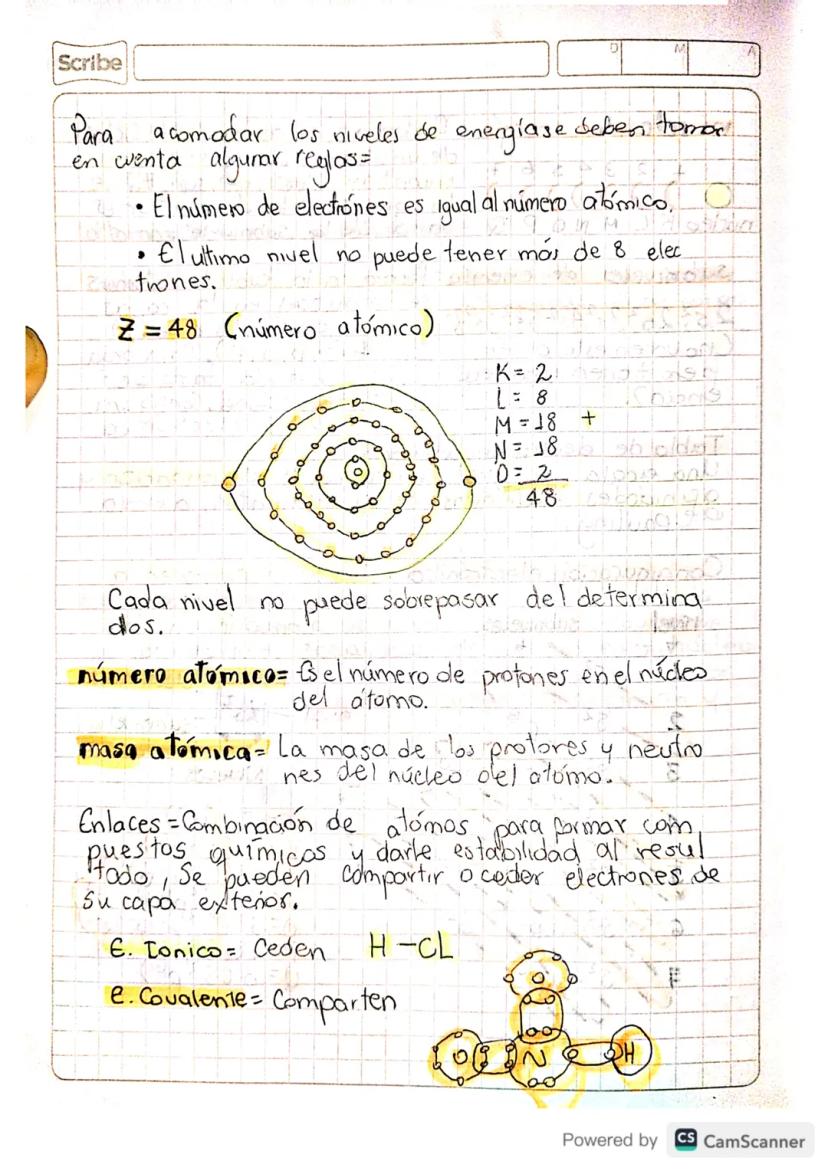 Scribe
D M A
Para acomodar los niveles de energía se deben tomar
en cuenta algunar reglas=
• El número de electrónes es igual al número atómico.
• El ultimo nivel no puede tener más de 8 elec
trones.
Z = 48 (número atómico)
K = 2
L = 8
M = 18 +
N = 18
O = 2
48
Cada nivel no puede sobrepasar del determina
dos.
número atómico= Es el número de protones en el núcleo
del átomo.
masa atómica= La masa de los protones y neutro
nes del núcleo del atómo.
Enlaces = Combinación de atómos para formar com
puestos químicos y darle estabilidad al resul
tado, Se pueden compartir o ceder electrones de
su capa exterior.
E. Ionico = Ceden H - CL
e. Covalente = Comparten
O
O N H
Powered by CS CamScanner